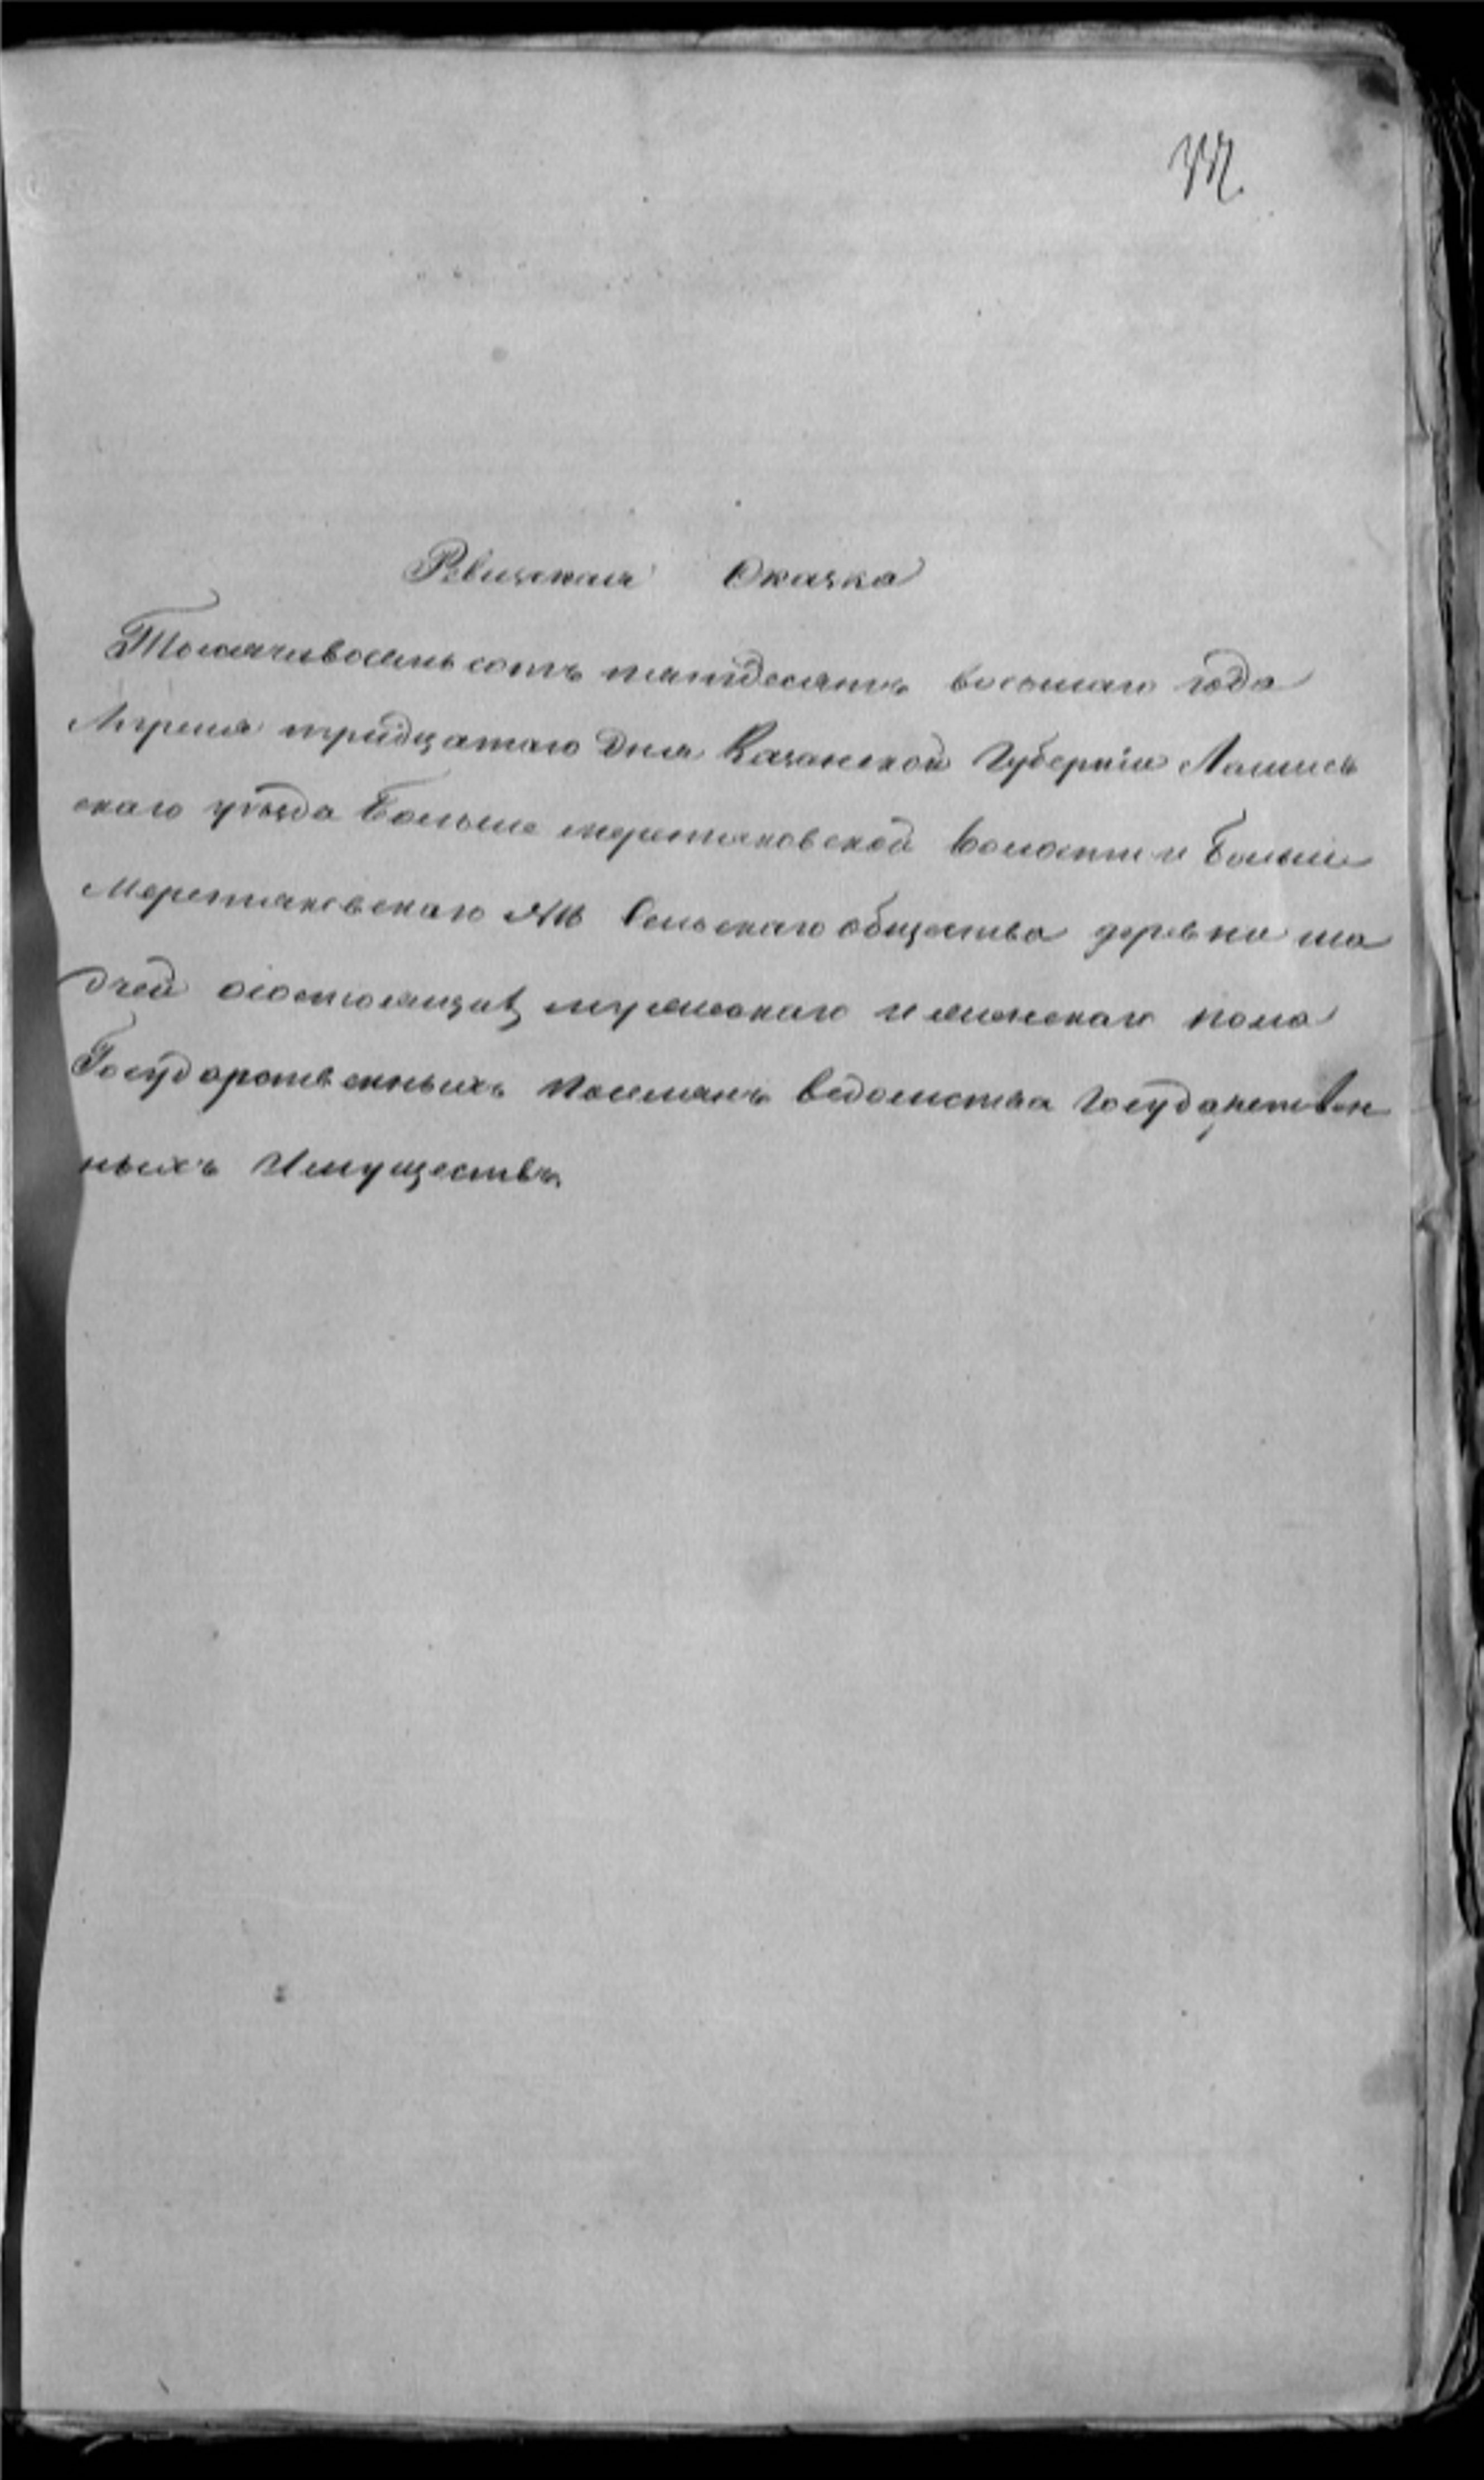 Ревизская Сказка
Тысячавосемьсотъ пятьдесятъ восьмаго года
Апреля тридцатаго дня Казанской Губерніи Лаишев
скаго уѣзда Больше меретяковской волости и Больше
Меретяковскаго Сельскаго общества деревни ша
дчей о состоящихъ мужескаго и женскаго пола
Государственныхъ поселянъ ведомства Государствен
ныхъ Имуществъ